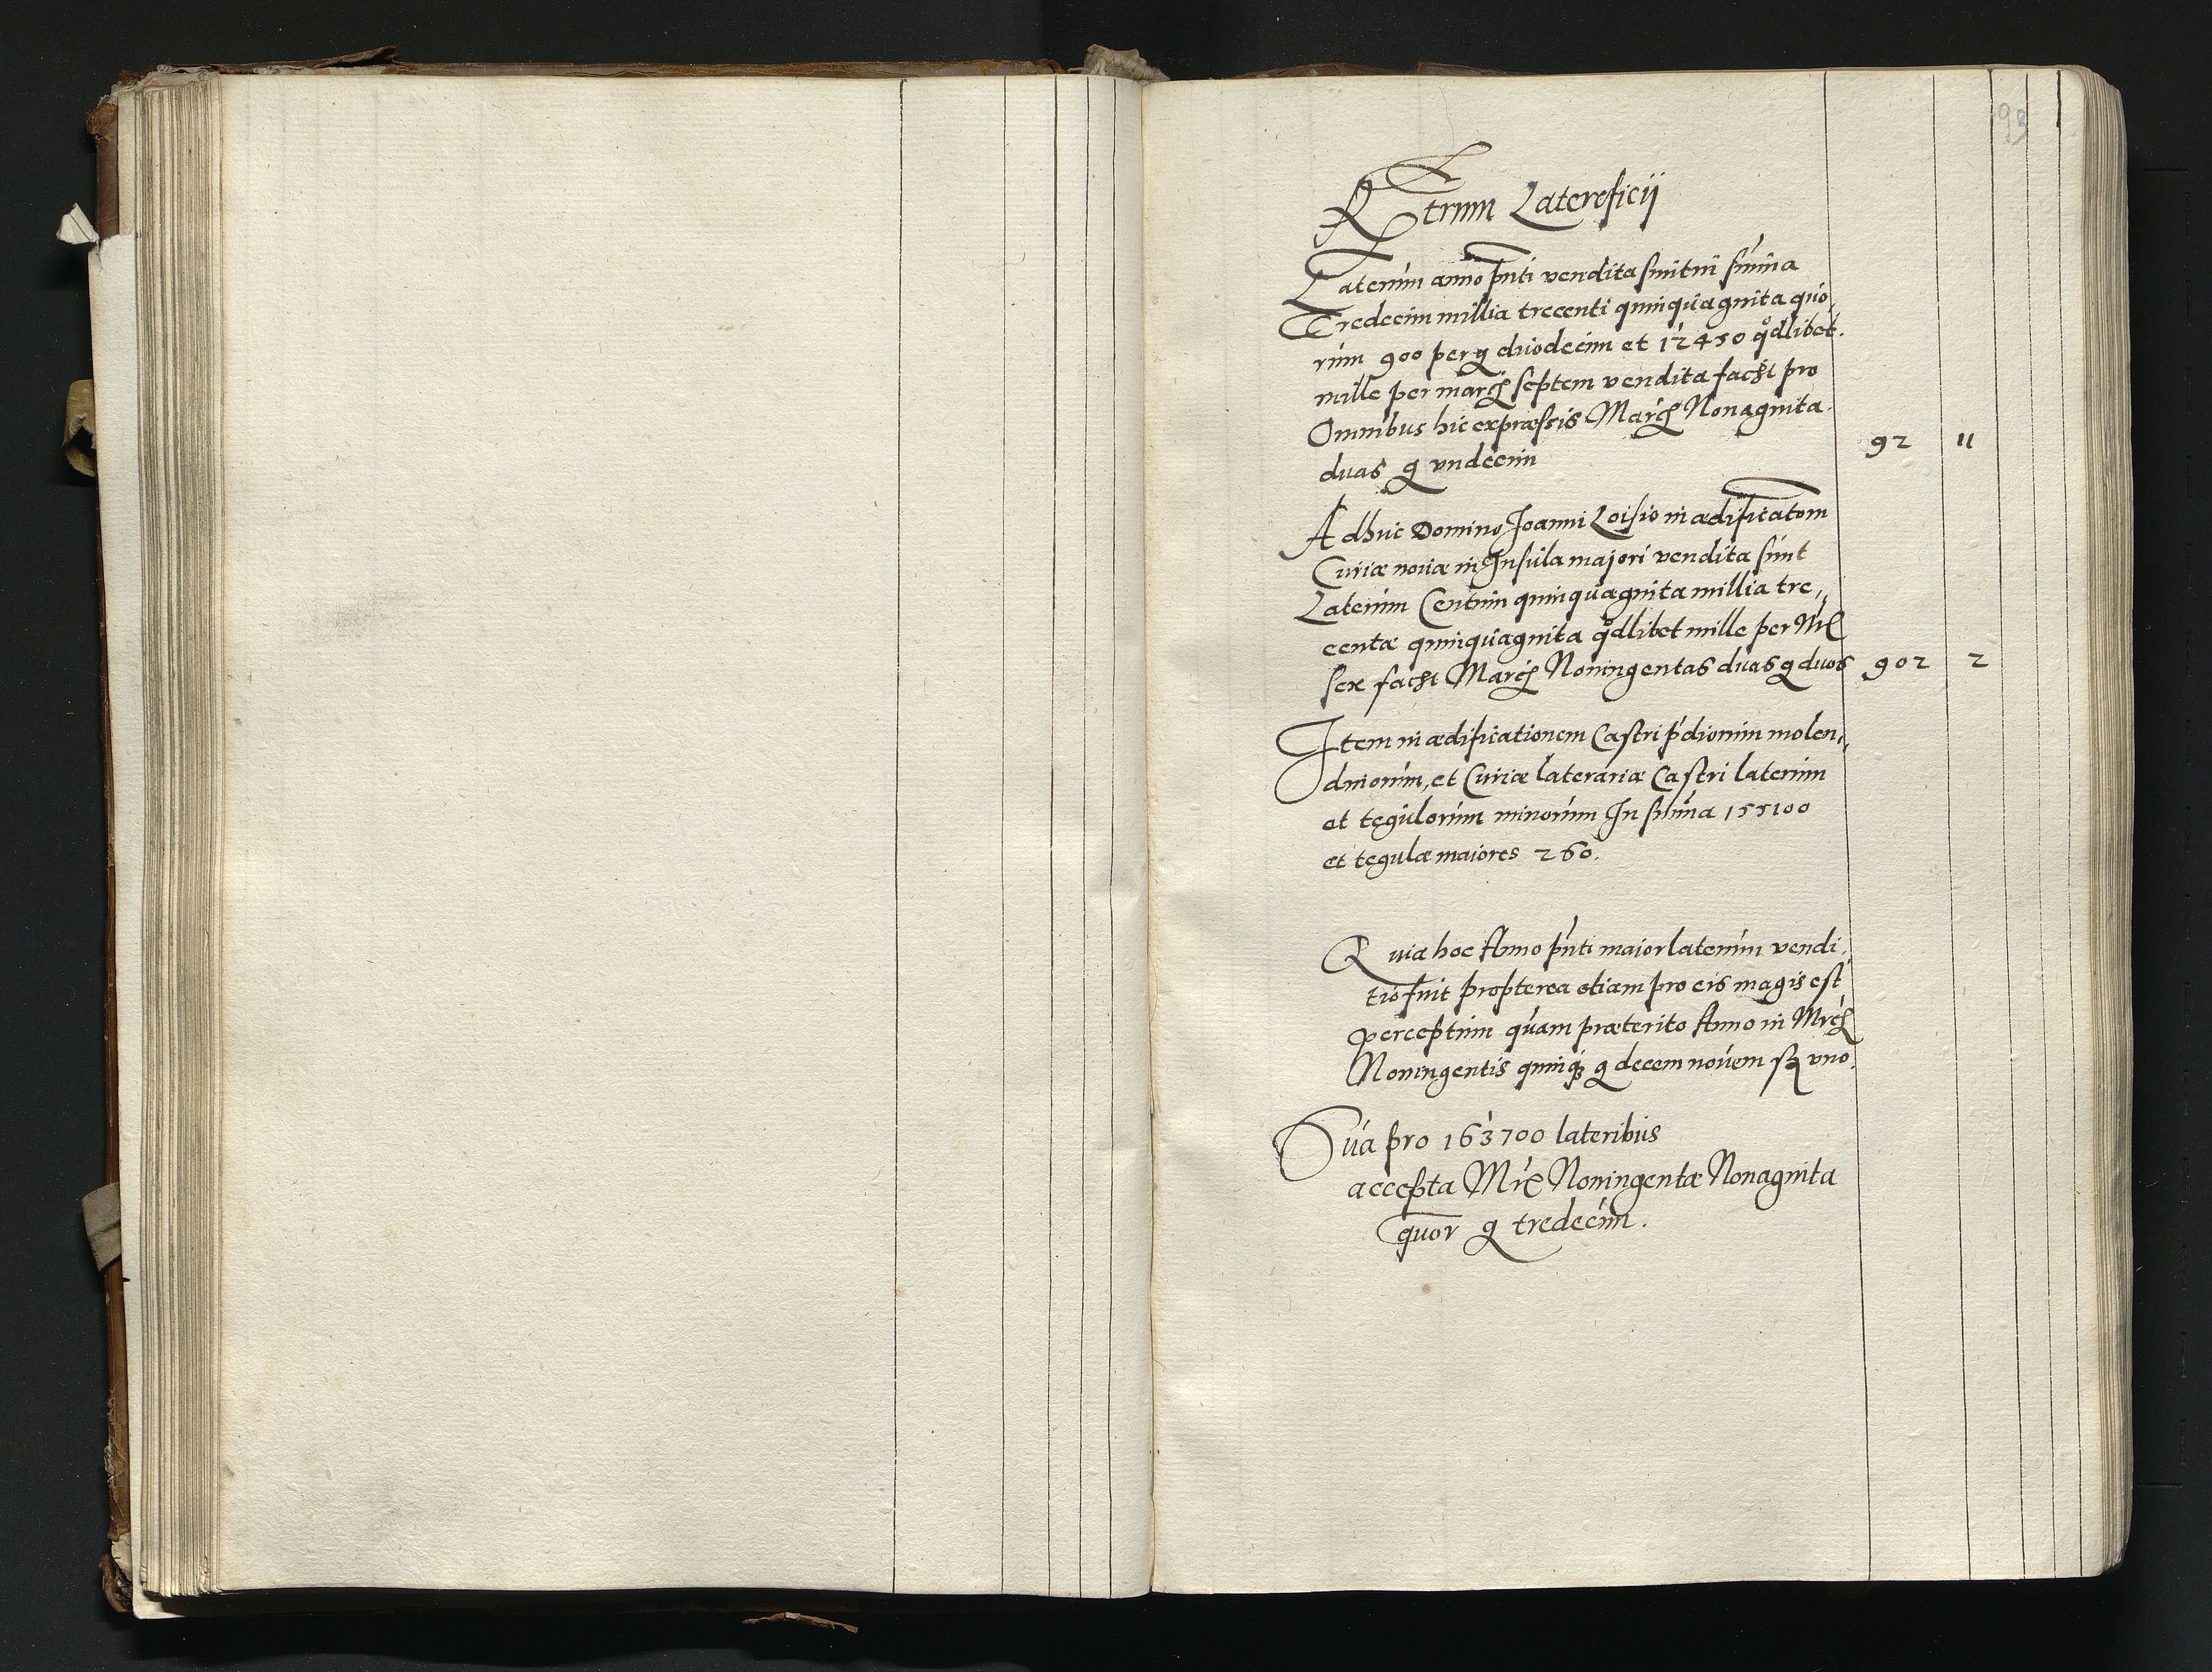 93
Rtrum Latereficij
Laterum anno pnti vendita sunt in summa
Tredecim millia trecenti quinquaginta quo
rum 900 per g duodecim et 12450 qdlibet
mille per marc septem vendita facit pro
Omnibus hic expressis Marc Nonaginta
duas g vndecim 92 11
Adhuc Domino Joanni Loisio in ædificatom
Curiæ nouæ in Insula majori vendita sunt
Laterum Centum quinquaginta millia tre„
centæ quinquaginta qdlibet mille per Mrc
sex facit Marc Noningentas duas g duos 902 2
Item in ædificationem Castri pdiorum molen„
dinorum, et Curiæ laterariæ Castri laterum
et tegulorum minorum In summa 155100
et tegulæ maiores 260.
Quia hoc Anno pnti maior laterum vendi„
tio fuit propterea etiam pro eis magis est
perceptum quam præterito Anno in Mrc
Noningentis quinq g decem novem sz vno.
Sua pro 163700 lateribus
accepta Mrc Noningentæ Nonaginta
quor g tredecim.